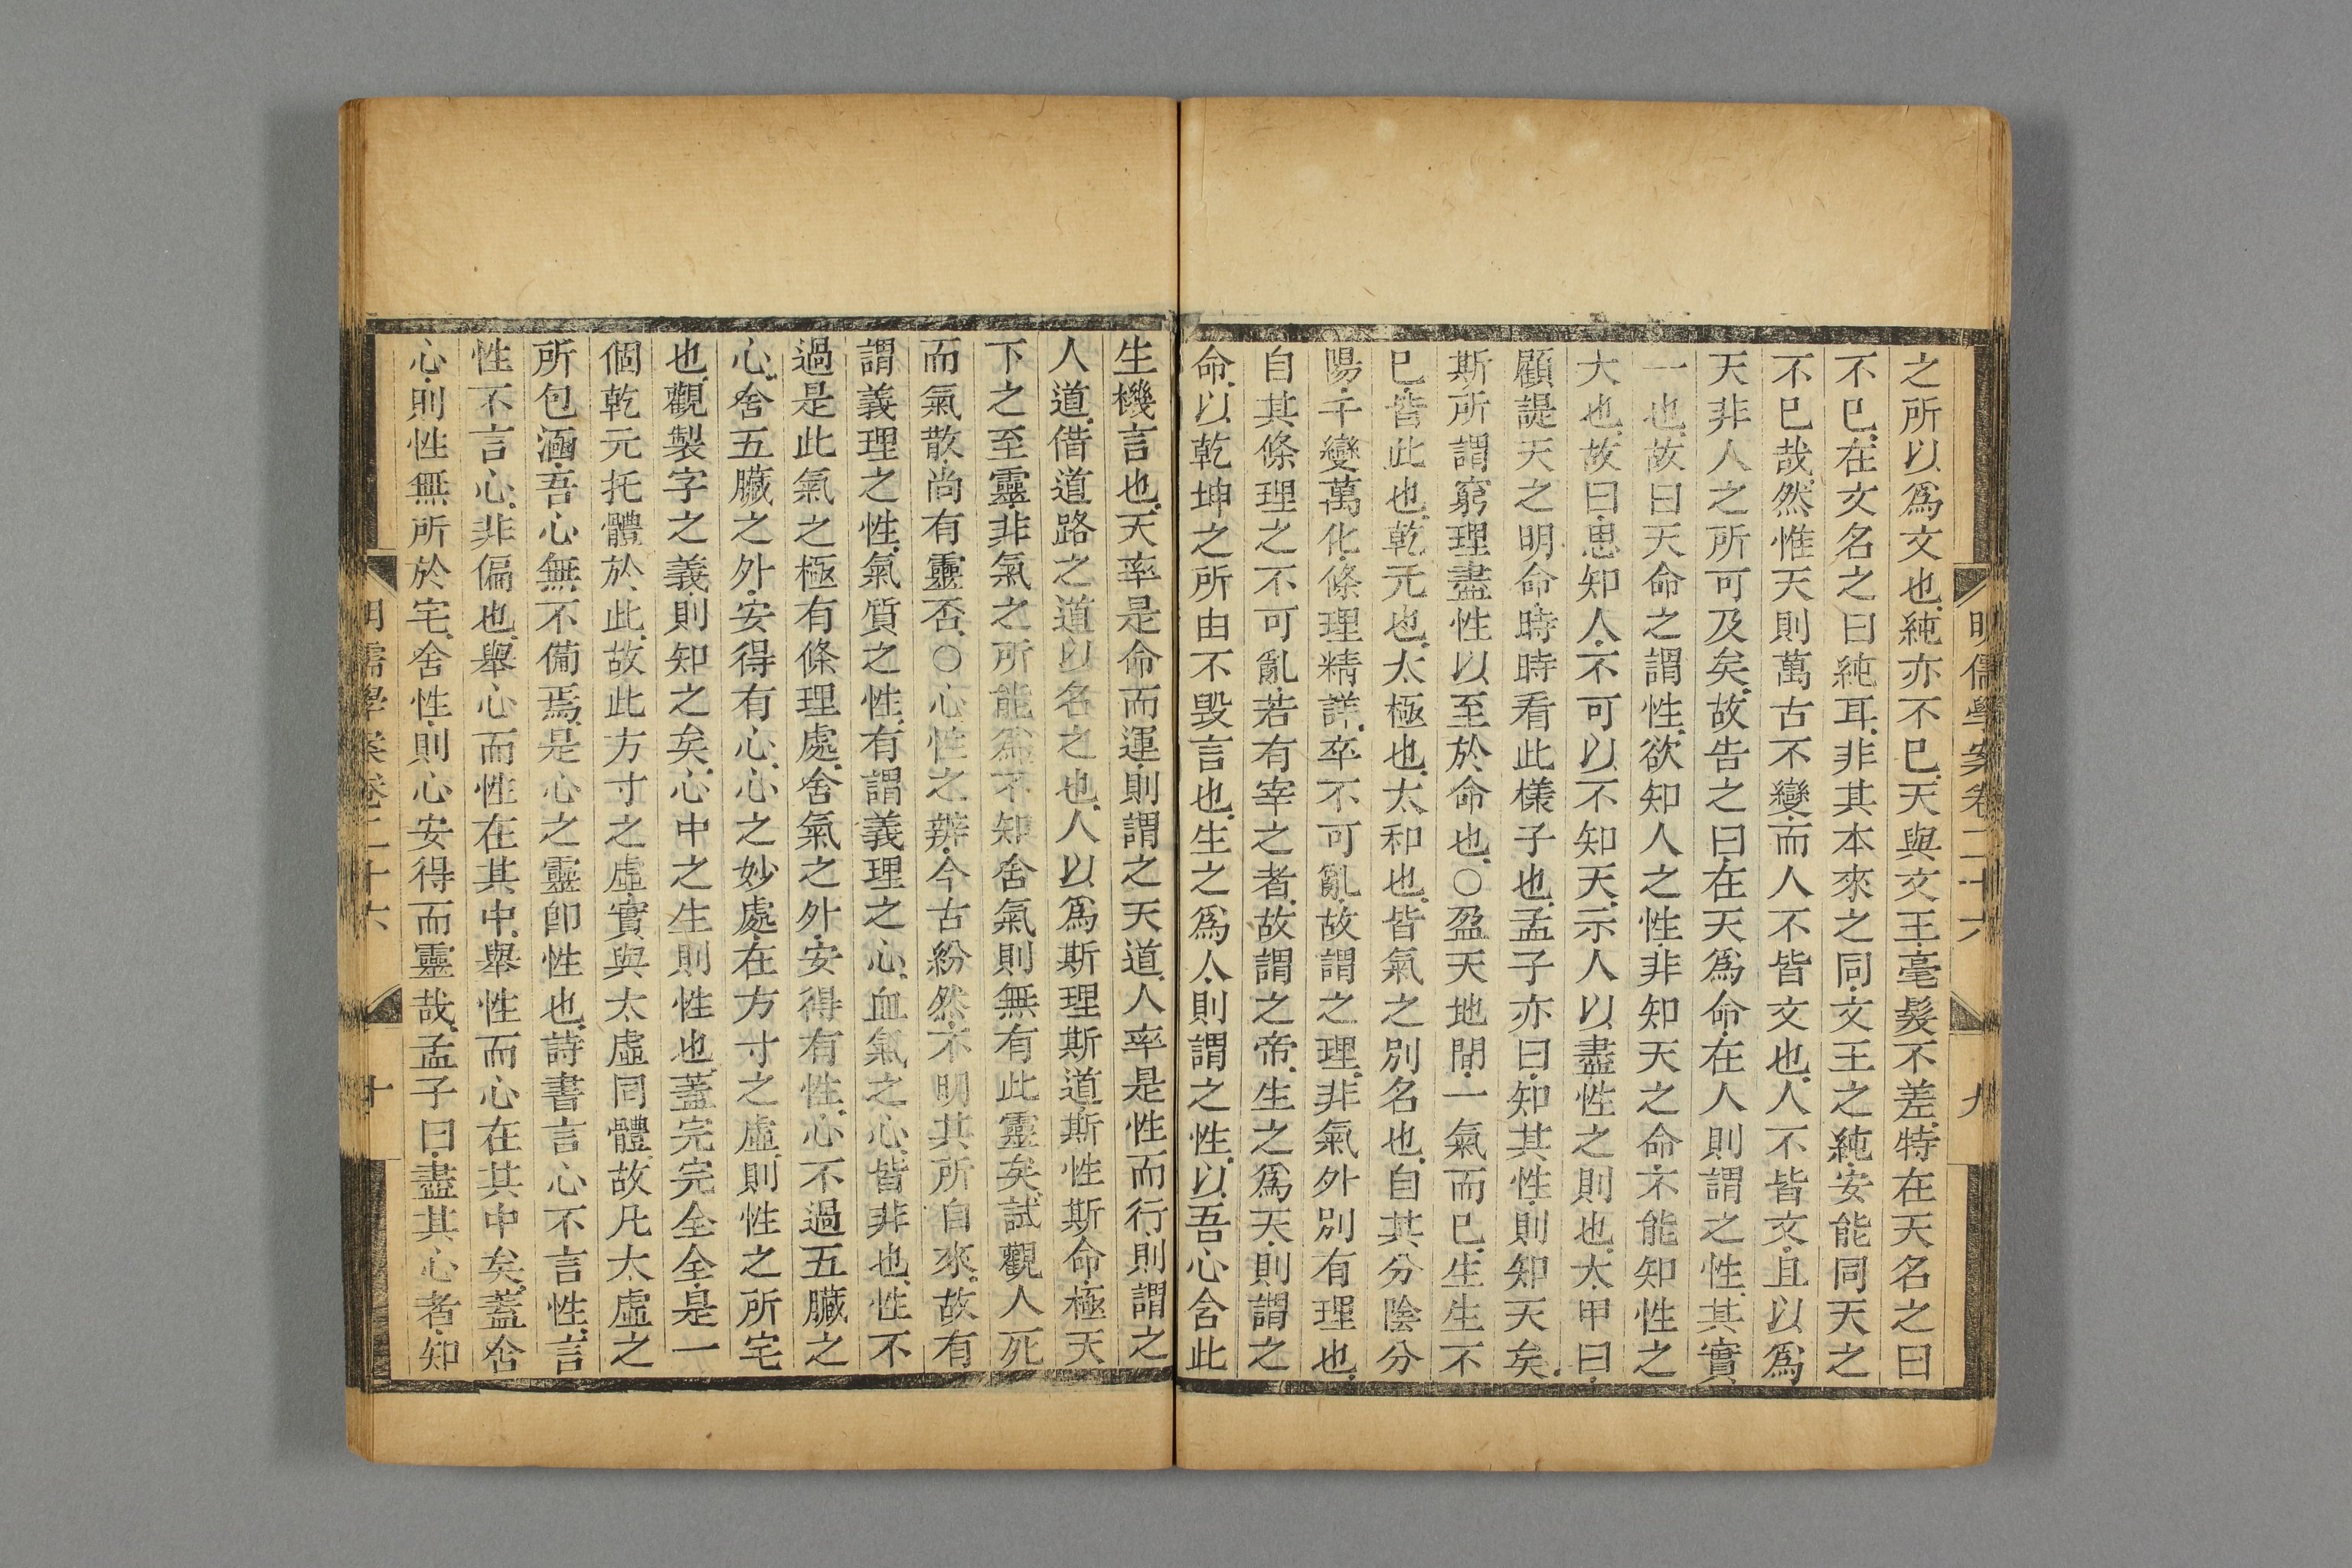 明儒學案卷二十六 九
之所以爲文也純亦不已天與文王毫髮不差特在天名之曰
不已在文名之曰純耳非其本來之同文王之純安能同天之
不已哉然惟天則萬古不變而人不皆文也人不皆文且以爲
天非人之所可及矣故告之曰在天爲命在人則謂之性其實
一也故曰天命之謂性欲知人之性非知天之命不能知性之
大也故曰思知人不可以不知天示人以盡性之則也太甲曰
顧諟天之明命時時看此樣子也孟子亦曰知其性則知天矣
斯所謂窮理盡性以至於命也○盈天地間一氣而已生生不
已皆此也乾元也太極也太和也皆氣之別名也自其分陰分
陽千變萬化條理精詳卒不可亂故謂之理非氣外別有理也
自其條理之不可亂若有宰之者故謂之帝生之爲天則謂之
命以乾坤之所由不毀言也生之爲人則謂之性以吾心舍此
生機言也天率是命而運則謂之天道人率是性而行則謂之
人道借道路之道以名之也人以爲斯理斯道斯性斯命極天
下之至靈非氣之所能爲不知舍氣則無有此靈矣試觀人死
而氣散尚有靈否○心性之辨今古紛然不明其所自來故有
謂義理之性氣質之性有謂義理之心血氣之心皆非也性不
過是此氣之極有條理處舍氣之外安得有性心不過五臟之
心舍五臟之外安得有心心之妙處在方寸之虛則性之所宅
也觀製字之義則知之矣心中之生則性也蓋完完全全是一
個乾元托體於此故此方寸之虛實與太虛同體故凡太虛之
所包涵吾心無不備焉是心之靈卽性也詩書言心不言性言
性不言心非偏也舉心而性在其中舉性而心在其中矣蓋舍
心則性無所於宅舍性則心安得而靈哉孟子曰盡其心者知
明儒學案卷二十六 十